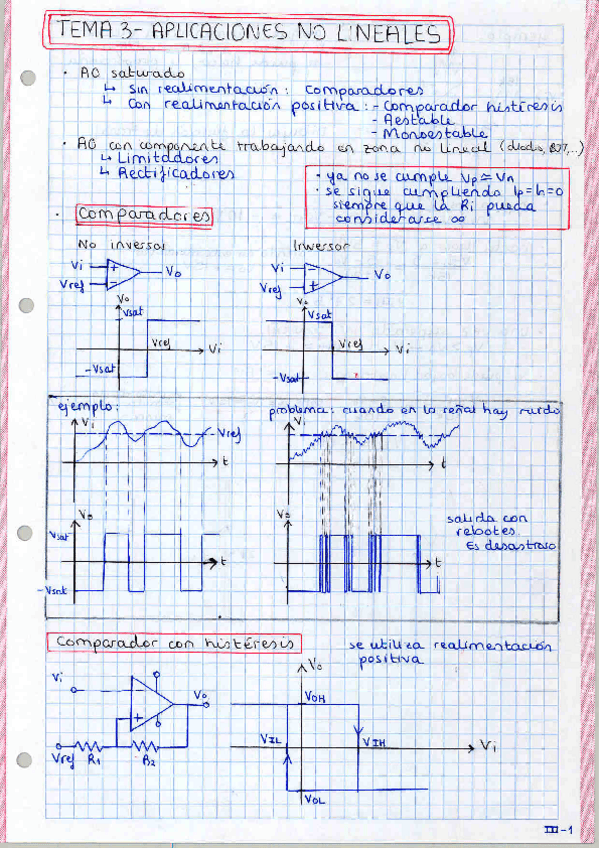 TEMA 3- APLICACIONES NO LINEALES
· AO saturado
↳ Sin realimentación: Comparadores
↳ Con realimentación positiva: - Comparador histéresis
- Aestable
- Monoestable
· AO con componente trabajando en zona no lineal (diodo, BJT,...)
↳ Limitadores
↳ Rectificadores
· ya no se cumple Vp ≈ Vn
· se sigue cumpliendo Ip=In=0
siempre que la Ri pueda
considerarse ∞
· Comparadores
No inversor
Inversor
Vi + Vo
Vref -
Vi - Vo
Vref +
Vo
Vsat
Vref
Vi
-Vsat
Vo
Vsat
Vref
Vi
-Vsat
ejemplo:
problema: cuando en la señal hay ruido
Vi
Vref
t
Vi
t
Vo
Vsat
t
-Vsat
Vo
t
salida con
rebotes.
Es desastroso
Comparador con histéresis
se utiliza realimentación
positiva
Vi
-
+
Vo
Vref
R1
R2
Vo
VOH
VIL
VIH
Vi
VOL
III-1